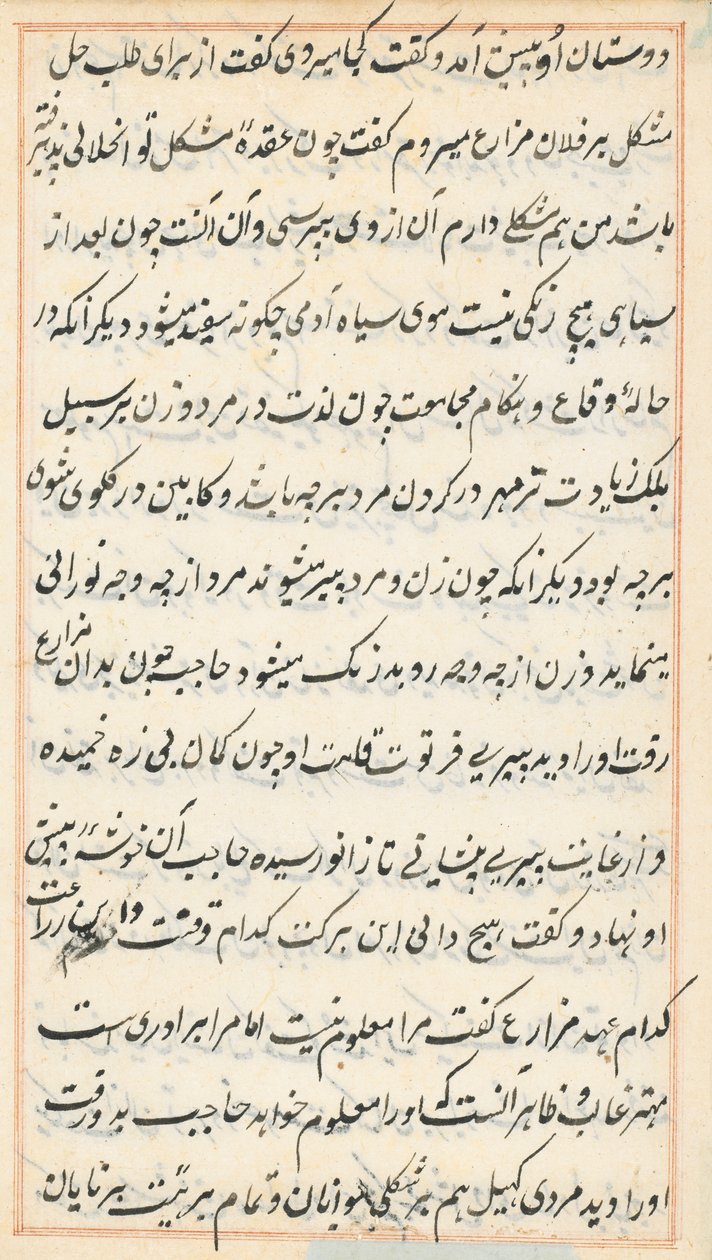 دوستان او پیش آمد و کفت کجا میروی کفت از برای طلب حل
مشکل بر فلان مزارع میروم کفت چون عقدهٔ مشکل تو انحلالی پذیرفته
باشد من هم مشکلے دارم آن از وی بپرسی و آن آنست چون بعد از
سیاہی ہیچ رنکی نیست موی سیاه آدمی چکونه سفید میشود دیکر آنکه در
حالهٔ وقاع و ہنکام مجامعت چون لذت در مرد و زن بر سبیل
بلکه زیادت تر مہر در کردن مرد بر چه باشد و کابین در کلوی شوی
بر چه بود دیکر آنکه چون زن و مرد پیر میشوند مرد از چه وجه نورانی
مینماید و زن از چه وجه روبد رنک میشود حاجب چون بدان مزارع
رفت او را دید پیرے فرتوت قامت او چون کمان بی زه خمیده
و از غایت پیرے پیشانے تا زانو رسیده حاجب آن خوشهٔ پیش
او نهاد و کفت ہیچ دانی این برکت کدام وقتت و این زراعت
کدام عہد مزارع کفت مرا معلوم نیست اما مرا برادری ہست
مہتر غالب و ظاہر آنست که او را معلوم خواہد حاجب بدو رفت
او را دید مردی کہیل ہم بر شکل جوانان و تمام بر ہیٔت برنایان